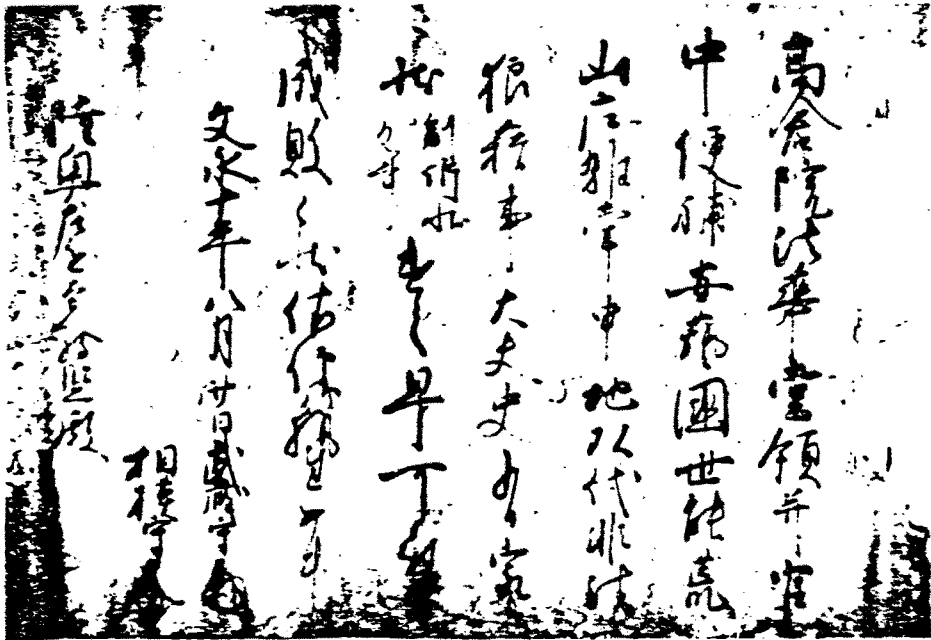 高倉院法華堂領并官
中便補安芸国世能荒
山庄雑掌申地頭代非法
狼藉事大夫史有家
状遣之早可尋
成敗之状依仰執達如件
文永十年八月廿日武蔵守
相模守
陸奥左近大夫将監殿